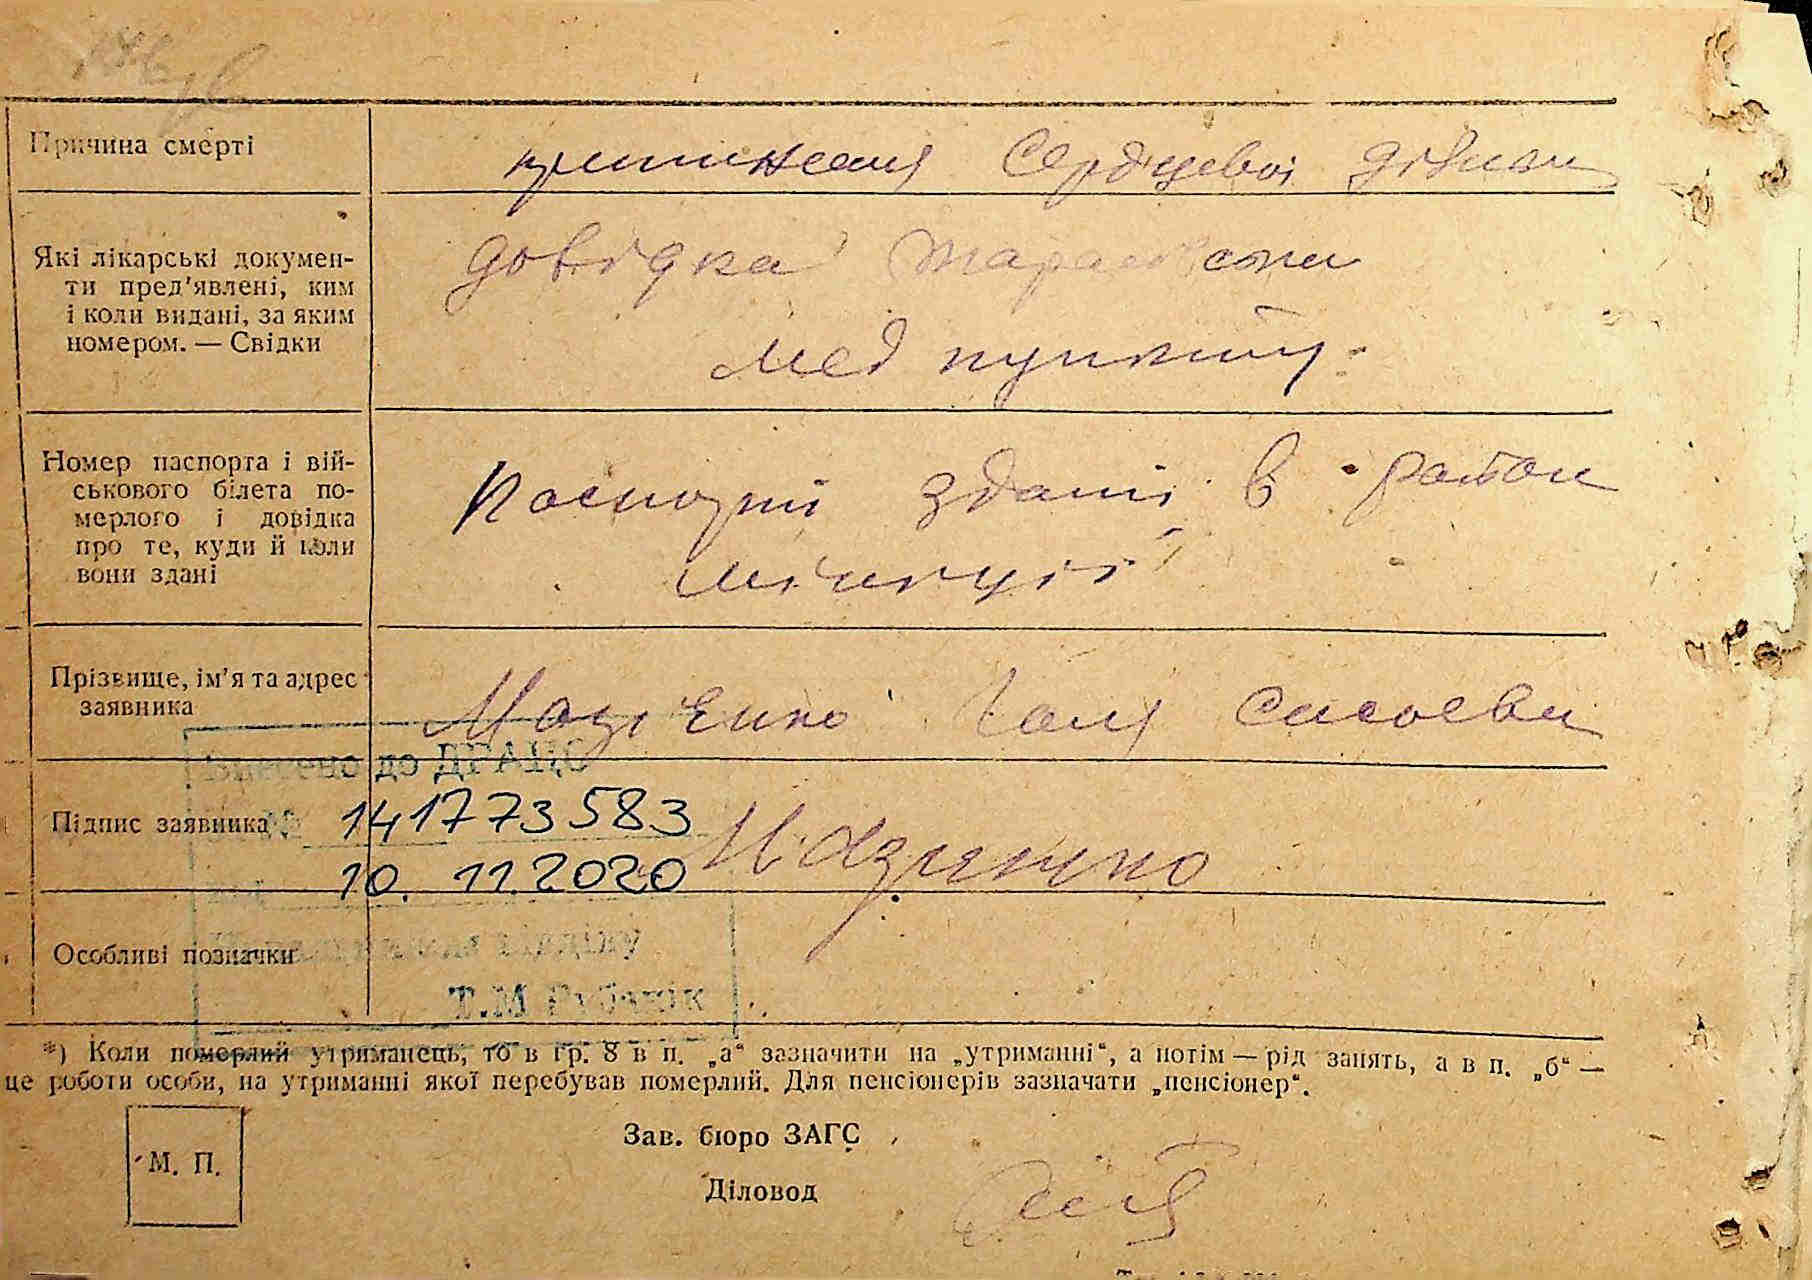 Причина смерті
Сердцевоі
Які лікарські докумен-
ти пред'явлені, ким
і коли видані, за яким
номером. — Свідки
довідка
мед пункту
Номер паспорта і вій-
ськового білета по-
мерлого і довідка
про те, куди й коли
вони здані
Паспорт здані в район
міліціі
Прізвище, ім'я та адрес
заявника
Галя
Внесено до ДРАЦС
за №
Підпис заявника
141773583
10. 11.2020
відділу
Т.М
Особливі позначки
*) Коли померлий утриманець, то в гр. 8 в п. „а“ зазначити на „утриманні“, а потім — рід занять, а в п. „б“ —
це роботи особи, на утриманні якої перебував померлий. Для пенсіонерів зазначати „пенсіонер“.
Зав. бюро ЗАГС
М. П.
Діловод